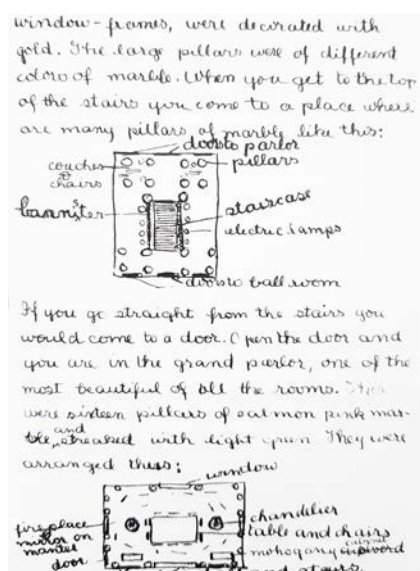 window-frames, were decorated with
gold. The large pillars were of different
colors of marble. When you get to the top
of the stairs you come to a place where
are many pillars of marble like this:
doors to parlor
couches
chairs
pillars
bannister
staircase
electric lamps
doors to ball room
If you go straight from the stairs you
would come to a door. Open the door and
you are in the grand parlor, one of the
most beautiful of all the rooms.
were sixteen pillars of salmon pink mar-
ble, and streaked with light grun They were
arranged thus:
window
fire place
mirror on
mantel
door
chandelier
table and chairs
mohogany cabinet
and stairs